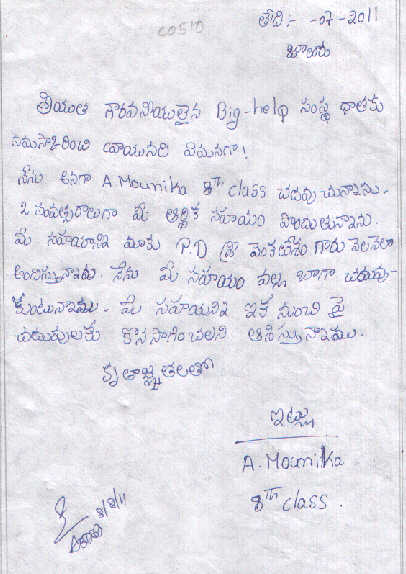 COS10
తేది:- -07-2011
జూలూరు
శ్రీయుత గౌరవనీయులైన Big-help సంస్థ దాతకు
నమస్కరించి వ్రాయునది ఏమనగా!
నేను అనగా A Mounika 8TH class చదువు చున్నాను.
2 సంవత్సరాలుగా మీ ఆర్థిక సహాయం పొందుతున్నాను.
మీ సహాయాన్ని మాకు P.D శ్రీ వెంకటేశం గారు నెలనెలా
అందిస్తున్నారు. నేను మీ సహాయం వల్ల బాగా చదువు-
కుంటున్నాను. మీ సహాయాన్ని ఇక నుంచి పై
చదువులకు కొనసాగించాలని ఆశిస్తున్నాను.
కృతజ్ఞతలతో
ఇట్లు
A. Mounika
8TH class.
8/8/11